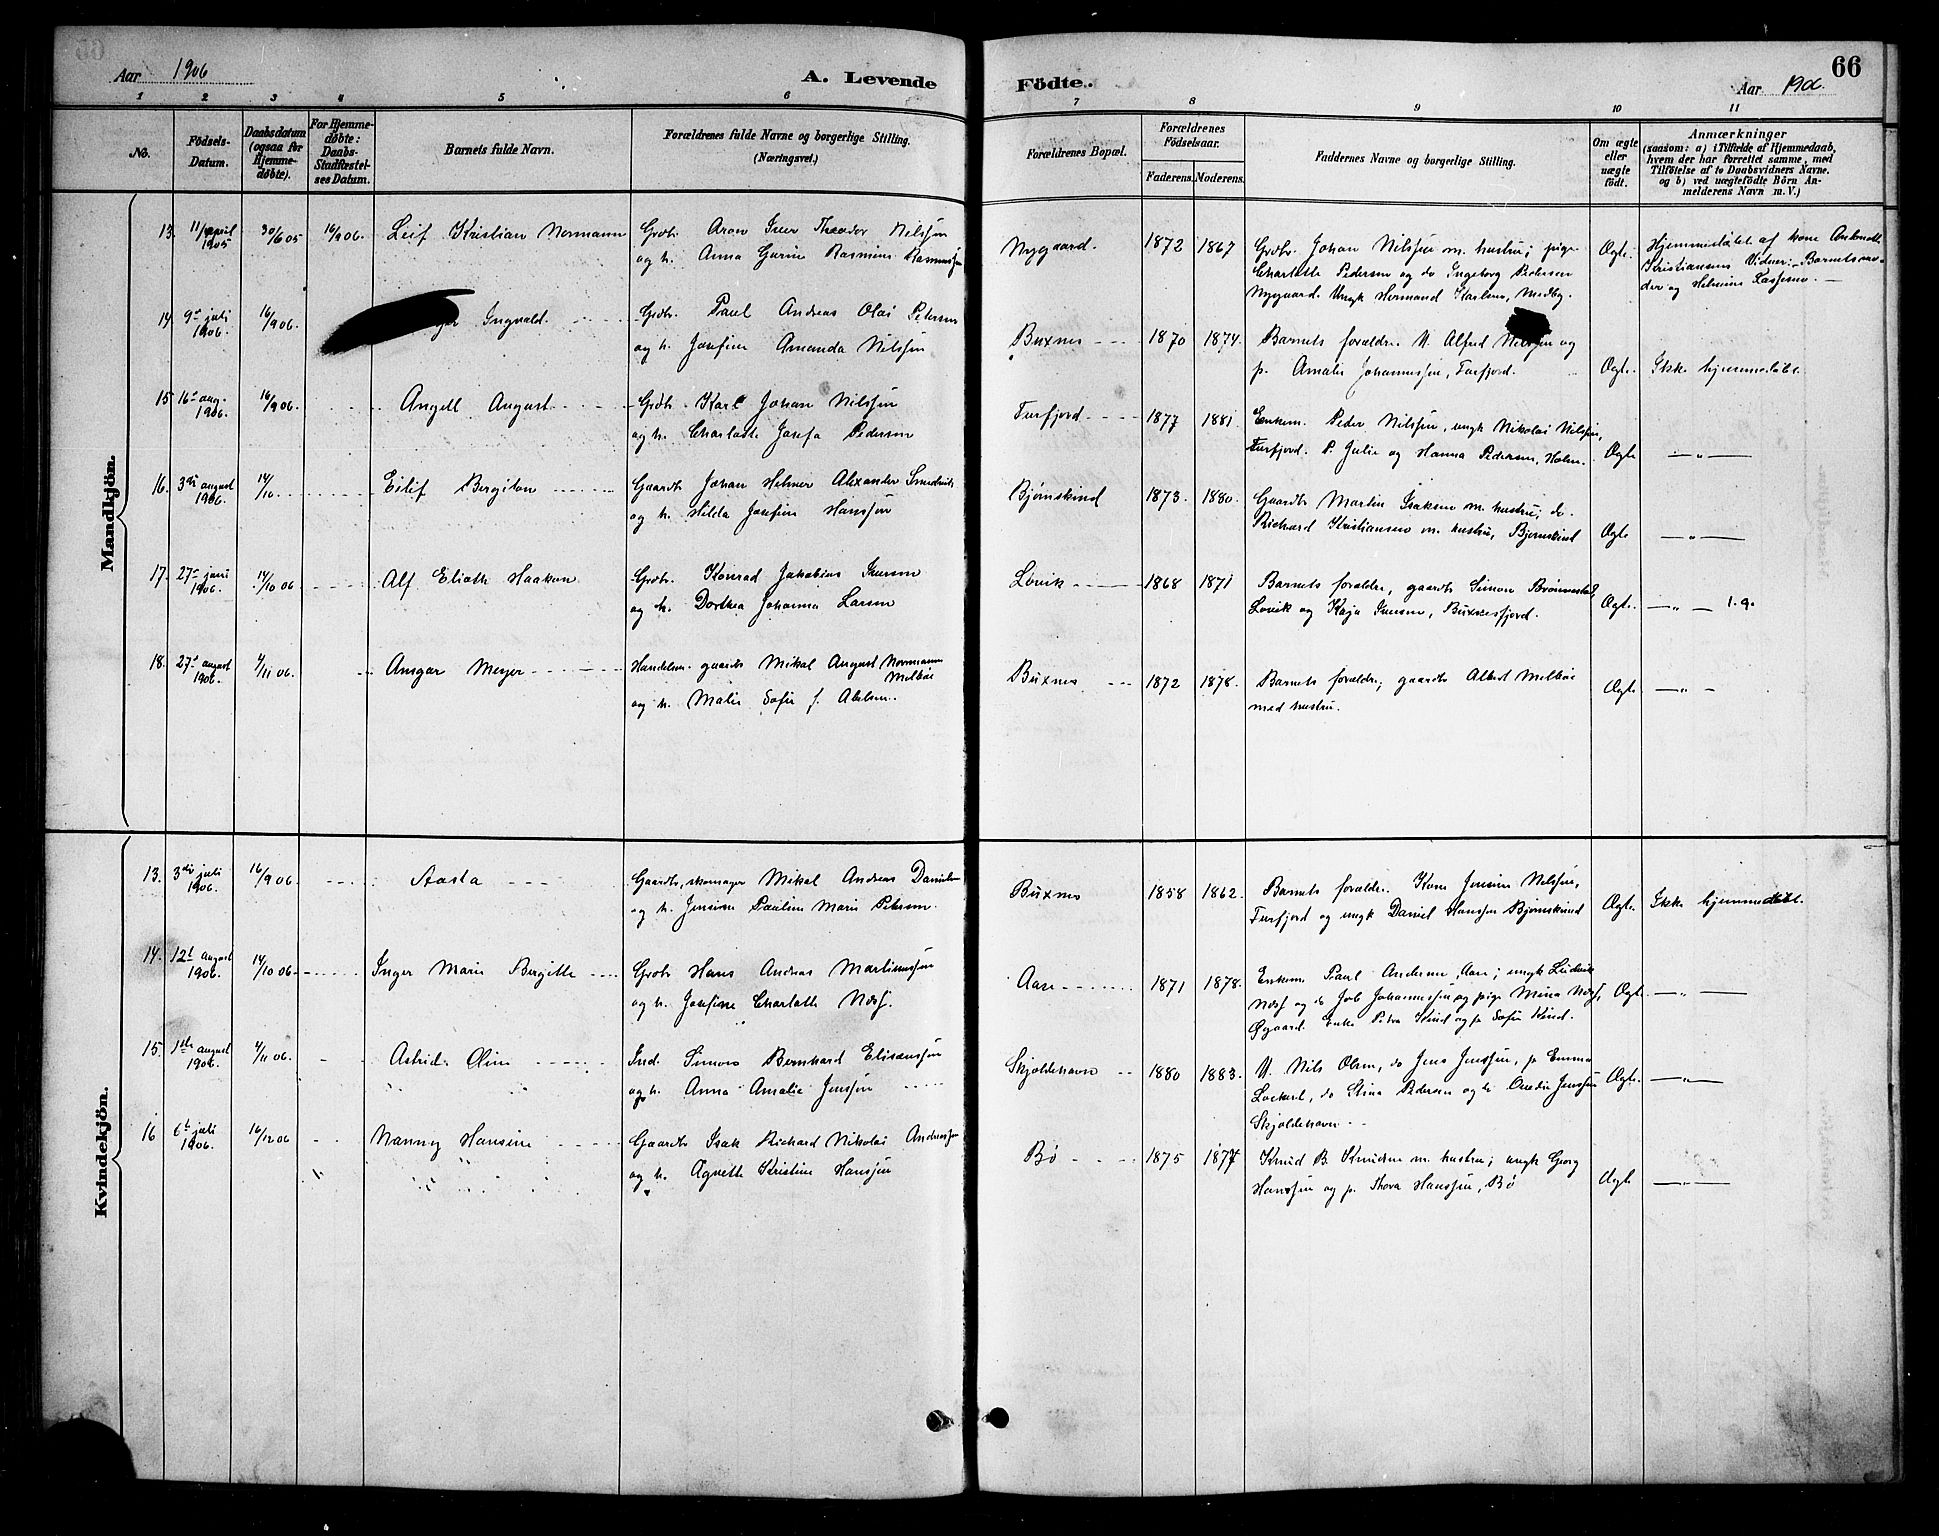 Aar 1906
A. Levende
Födte.
66
Aar 1906.
1 2 3 4 5 6 7 8 9 10 11
No.
Födsels-
Datum.
Daabsdatum
(ogsaa for
Hjemme-
döbte).
For Hjemme-
døbte:
Daabs-
Stadfæstel-
ses Datum.
Barnets fulde Navn.
Forældrenes fulde Navne og borgerlige Stilling.
(Næringsvei.)
Forældrenes Bopæl.
Forældrenes
Födselsaar.
Faderens. Moderens.
Faddernes Navne og borgerlige Stilling.
Om ægte
eller
uægte
födt.
Anmærkninger
(saasom: a) i Tilfælde af Hjemmedaab,
hvem der har forrettet samme, med
Tilföielse af to Daabsvidners Navne.
og b) ved uægtefödte Börn An-
melderens Navn m. V.)
Mandkjön.
13. 11/april 1905 30/6 05 16/9 06. Leif Kristian Normann
Grdbr. Aron Theodor Nilssen
og h. Anna Gurine Rasmine Rasmussen
Nygaard. 1872 1867
Grdbr. Johan Nilssen m. hustru; pige
Charlotte Pedersen og do Ingeborg Pedersen
Nygaard. Ungk Hermand Karlsen, Medby.
Ægte.
Hjemmedøbt af kone
Kristiansens Vidner: Barnets mo-
der og Helmine
14. 9de juli 1906. 16/9 06. Ingvald.
Grdbr. Paul Andreas Olai Petersen
og h. Josefine Amanda Nilssen
Buxnes 1870 1874.
Barnets forældre. U. Alfred Nilssen og
p. Amalie Johannessen, Turfjord.
Ægte. Ikke hjemmedøbt.
15 16de aug. 1906. 16/9 06. Angell August
Grdbr. Karl Johan Nilssen
og h. Charlotte Josefa Pedersen
Turfjord 1877 1881.
Enkem. Peder Nilssen, ungk Nikolai Nilssen,
Turfjord. P. Julie og Hanna Pedersen, Holm.
Ægte — „ —
16. 3die august 1906. 14/10. Eilif Bergiton
Gaardbr. Johan Helmer Alexander
og h. Hilda Josefine Hanssen
Bjørnskind 1873. 1880.
Gaardbr Martin Isaksen m. hustru; do.
Richard Kristiansen m. hustru, Bjørnskind
Ægte — „ —
17. 27de juni 1906. 14/10 06 Alf Eliath Haakon
Grdbr. Konrad Jakobius Iversen
og h. Dorthea Johanna Larsen
Lovik 1868 1871
Barnets forældre, gaardbr Simon
Lovik og Kaja Iversen, Buxnesfjord.
Ægte. — „ — 1.9.
18. 27de august 1906. 4/11 06. Ansgar Meyer
Handelsm. gaardbr Mikal August Normann
Melbøe
og h. Malie Sofie f. Abelsen.
Buxnes 1872 1878.
Barnets forældre; gaardbr Albert Melbøe
med hustru.
Ægte — „ —
Kvindekjön.
13. 3die juli 1906. 16/9 06. Aasta
Gaardbr, skomager Mikal Andreas
og h. Jensine Pauline Marie Petersen.
Buxnes 1858 1862.
Barnets forældre. Kone Jensine Nilssen,
Turfjord og ungk Daniel Hanssen Bjørnskind
Ægte. Ikke hjemmedøbt.
14. 12te august 1906. 14/10 06. Inger Marie Bergitte
Grdbr Hans Andreas Martinussen
og h. Josefine Charlotte Næss.
Aase 1871 1878.
Enkem Paul Andersen Aase; ungk Ludvik
Næss og do Job Johannessen og pige Mina Næss,
Øgaard. Enke Petra Kind og p. Sofie Kind.
Ægte. — „ —
15. 1ste august 1906. 4/11 06. Astrid Oline
Ind. Simon Bernhard Eliseussen
og h. Anna Amalie Jenssen
Skjoldehavn 1880 1883.
U. Nils Olsen, do Jens Jenssen, p. Emma
Lockert, do Stina Pedersen og do Jenssen
Skjoldehavn
Ægte. — „ —
16 6te juli 1906. 16/12 06 Nanny Hansine
Gaardbr Isak Richard Nikolai Andreassen
og h. Agnethe Kristine Hanssen
Bø 1875 1877
Knud B. Knudsen m. hustru; ungk Georg
Hanssen og p. Thora Hanssen, Bø
Ægte — „ —